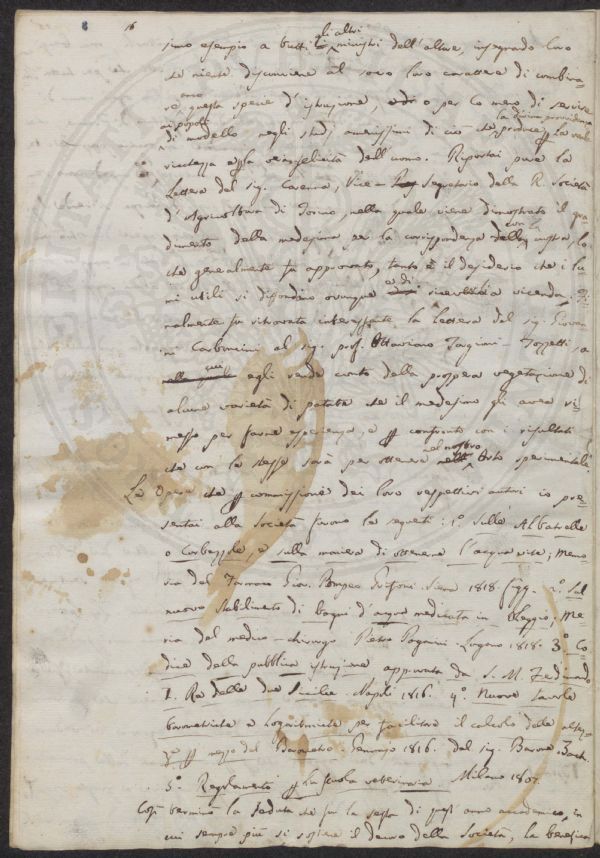 16
8
simo esempio a tutti gli altri ministri dell'altare, insegnando loro
che niente disconviene al sacro loro carattere di combina-
re questa specie d'istruzione, o per lo meno di servire
ai popoli di modello negli studj amenissimi di ciò che la divina provvidenza produce per la
ricchezza e per la semplicità dell'uomo. Riportai pure la
Lettera del sig. Carena, Vice-Segretario della R. Società
d'Agricoltura di Torino, nella quale viene dimostrato il gra-
dimento della medesima per la corrispondenza con la nostra, lo
che generalmente fu approvato, tanto è il desiderio che i lu-
mi utili si difondino ovunque ed a vicenda
nalmente fu ritrovata interessante la Lettera del sig. Giovan-
ni Carboncini al sig. prof. Ottaviano Targioni-Tozzetti
egli rende conto della prospera vegetazione di
alcune varietà di patate che il medesimo gli avea ri-
messo per farne esperienza, e per confronto con i risultati
che con le stesse sarà per ottenere nel nostro Orto sperimentale.
Le Opere che per commissione dei loro respettivi autori io pre-
sentai alla Società furono le seguenti: 1.° Sulle Albatrelle
o Corbezzole, e sulla maniera di ottenerne l'acqua vite; Memo-
ria del Farmac. Giov. Pompeo Siena 1818. 2.° Sul
nuovo stabilimento di bagni d'acqua medicata in Reggio; Me-
ria del medico-chirurgo Pietro Paganini. Lugano 1818. 3.° Co-
dice della pubblica istruzione approvata da S. M. Ferdinando
I. Re delle due Sicilie. Napoli 1816. 4.° Nuove tavole
barometriche e Logaritmiche per facilitare il calcolo delle altez-
ze per mezzo del Barometro. Gennajo 1816. del sig. Barone Zach.
5.° Regolamento per la scuola veterinaria Milano 1807.
Così terminò la seduta che fu la sesta di quest'anno accademico, in
cui sempre più si sostiene il decoro della Società, la beneficen